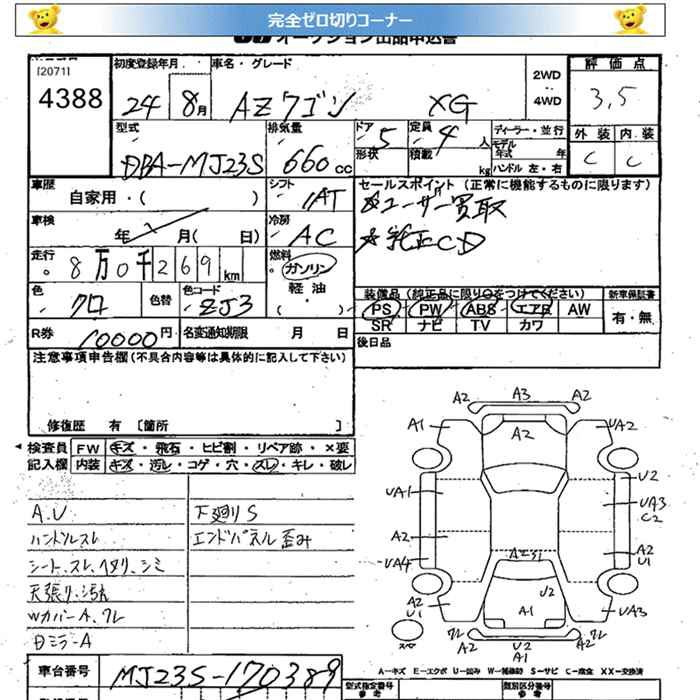 完全ゼロ切りコーナー
オークション出品申込書
[2071]
4388
初度登録年月
24年 8月
車名・グレード
AZワゴン XG
2WD
4WD
評価点
3.5
外装 内装
C C
型式
DBA-MJ23S
排気量
660cc
ドア 5
形状
定員 4人
積載 kg
ディーラー・並行
モデル年式 年
ハンドル 左・右
車歴
自家用・( )
シフト
IAT
セールスポイント(正常に機能するものに限ります)
☆ユーザー買取
☆純正CD
車検
年 月( 日)
冷房
AC
走行
8万0千269km
燃料
ガソリン
軽油
・( )
色
クロ
色替
色コード
ZJ3
装備品(純正品に限り○をつけてください)
PS PW ABS エアB AW
SR ナビ TV カワ
新車保証書
有・無
R券 10000円
名変通知期限 月 日
後日品
注意事項申告欄(不具合内容等は具体的に記入して下さい)
修復歴 有 [箇所 ]
検査員記入欄
FW キズ・飛石・ヒビ割・リペア跡・×要
内装 キズ・汚レ・コゲ・穴・スレ・キレ・破レ
A.U
ハンドルスレ
シート、スレ、ヘタリ、シミ
天張り、汚れ
WカバーA、ワレ
DミラーA
下廻りS
エンドパネル歪み
A2 A3 A2
A1 A2 UA2
UA1 U2
UA3
C2
A2 A2
U1
UA4 A2S1
A2
U1 U2 A1 UA3
スペア ワレ A2 U2 A2 ワレ
A1
A-キズ E-エクボ U-凹み W-補修跡 S-サビ C-腐食 XX-交換済
車台番号
MJ23S-170389
型式指定番号
類別区分番号